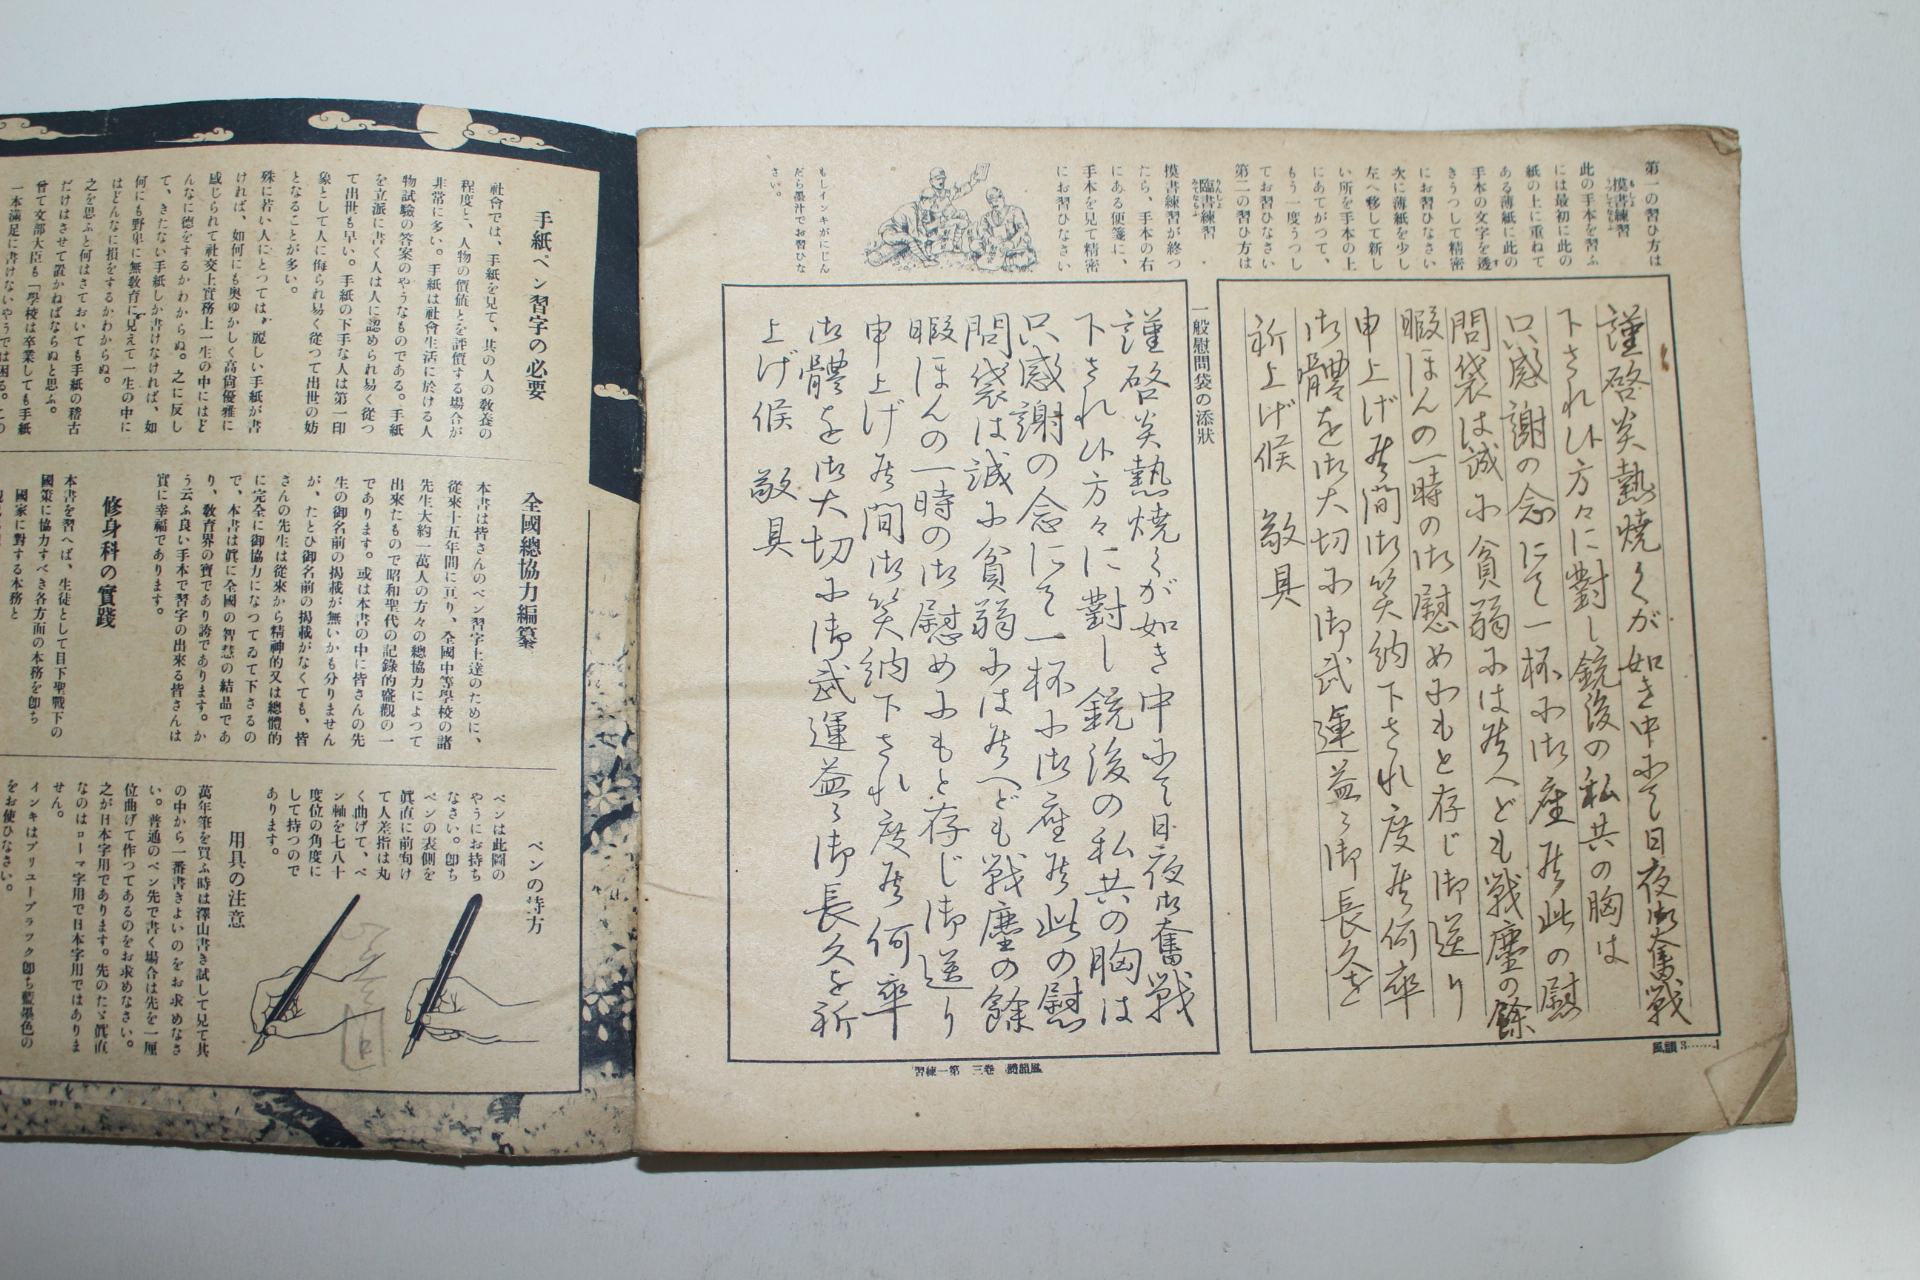 第一の習ひ方は
摸書練習
此の手本を習ふ
には最初に此の
紙の上に重ねて
ある薄紙に此の
手本の文字を透
きうつして精密
にお習ひなさい
次に薄紙を少し
左へ移して新し
い所を手本の上
にあてがつて、
もう一度うつし
てお習ひなさい
第二の習ひ方は
臨書練習
摸書練習が終つ
たら、手本の右
にある便箋に、
手本を見て精密
にお習ひなさい
もしインキがにじん
だら墨汁でお習ひな
さい。
謹啓炎熱焼くが如き中にて日夜御奮戦
下され候方々に對し銃後の私共の胸は
只感謝の念にて一杯に御座候此の慰
問袋は誠に貧弱には候へども戦塵の餘
暇ほんの一時の御慰めにもと存じ御送り
申上げ候間御笑納下され度候何卒
御體を御大切に御武運益々御長久を
祈上げ候 敬具
一般慰問袋の添狀
謹啓炎熱焼くが如き中にて日夜御奮戦
下され候方々に對し銃後の私共の胸は
只感謝の念にて一杯に御座候此の慰
問袋は誠に貧弱には候へども戦塵の餘
暇ほんの一時の御慰めにもと存じ御送り
申上げ候間御笑納下され度候何卒
御體を御大切に御武運益々御長久を祈
上げ候 敬具
手紙ペン習字の必要
社會では、手紙を見て、其の人の敎養の
程度と、人物の價値とを評價する場合が
非常に多い。手紙は社會生活に於ける人
物試驗の答案のやうなものである。手紙
を立派に書く人は人に認められ易く從つ
て出世も早い。手紙の下手な人は第一印
象として人に侮られ易く從つて出世の妨
となることが多い。
殊に若い人にとつては、麗しい手紙が書
ければ、如何にも奥ゆかしく高尚優雅に
感じられて社交上實務上一生の中にはど
んなに德をするかわからぬ。之に反し
て、きたない手紙しか書けなければ、如
何にも野卑に無敎育に見えて一生の中に
はどんなに損をするかわからぬ。
之を思ふと何はさておいても手紙の稽古
だけはさせて置かねばならぬと思ふ。
曾て文部大臣も「學校は卒業しても手紙
一本滿足に書けないやうでは困る。この
全國總協力編纂
本書は皆さんのペン習字上達のために、
從來十五年間に亘り、全國中等學校の諸
先生大約一萬人の方々の總協力によつて
出來たもので昭和聖代の記錄的盛觀の一
であります。或は本書の中に皆さんの先
生の御名前の揭載が無いかも分りません
が、たとひ御名前の揭載がなくても、皆
さんの先生は從來から精神的又は總體的
に完全に御協力になつてゐて下さるの
で、本書は眞に全國の智慧の結晶であ
り、敎育界の寶であり誇であります。か
う云ふ良い手本で習字の出來る皆さんは
實に幸福であります。
修身科の實踐
本書を習へば、生徒として目下聖戰下の
國策に協力すべき各方面の本務を卽ち
國家に對する本務と
ペンの持方
ペンは此圖の
やうにお持ち
なさい。卽ち
ペンの表側を
眞直に前向け
て人差指は丸
く曲げて、ペ
ン軸を七八十
度位の角度に
して持つので
あります。
用具の注意
萬年筆を買ふ時は澤山書き試して見て其
の中から一番書きよいのをお求めなさ
い。普通のペン先で書く場合は先を一厘
位曲げて作つてあるのをお求めなさい。
之が日本字用であります。先のたゞ眞直
なのはローマ字用で日本字用ではありま
せん。
インキはブリユーブラツク卽ち藍墨色の
をお使ひなさい。